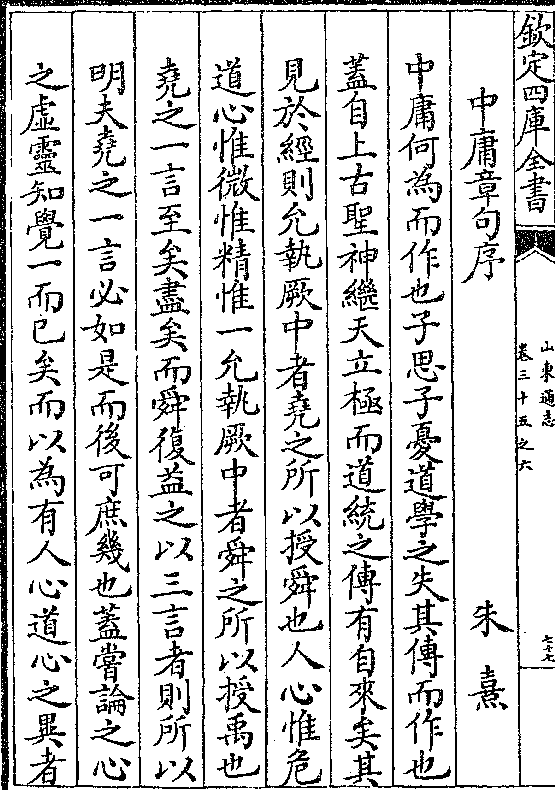 欽定四庫全書
山東通志
卷三十五之六
七十七
中庸章句序 朱熹
中庸何為而作也子思子憂道學之失其傳而作也
蓋自上古聖神繼天立極而道統之傳有自來矣其
見於經則允執厥中者堯之所以授舜也人心惟危
道心惟微惟精惟一允執厥中者舜之所以授禹也
堯之一言至矣盡矣而舜復益之以三言者則所以
明夫堯之一言必如是而後可庶幾也蓋嘗論之心
之虛靈知覺一而已矣而以為有人心道心之異者